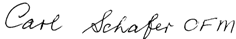 Carl Schafer OFM